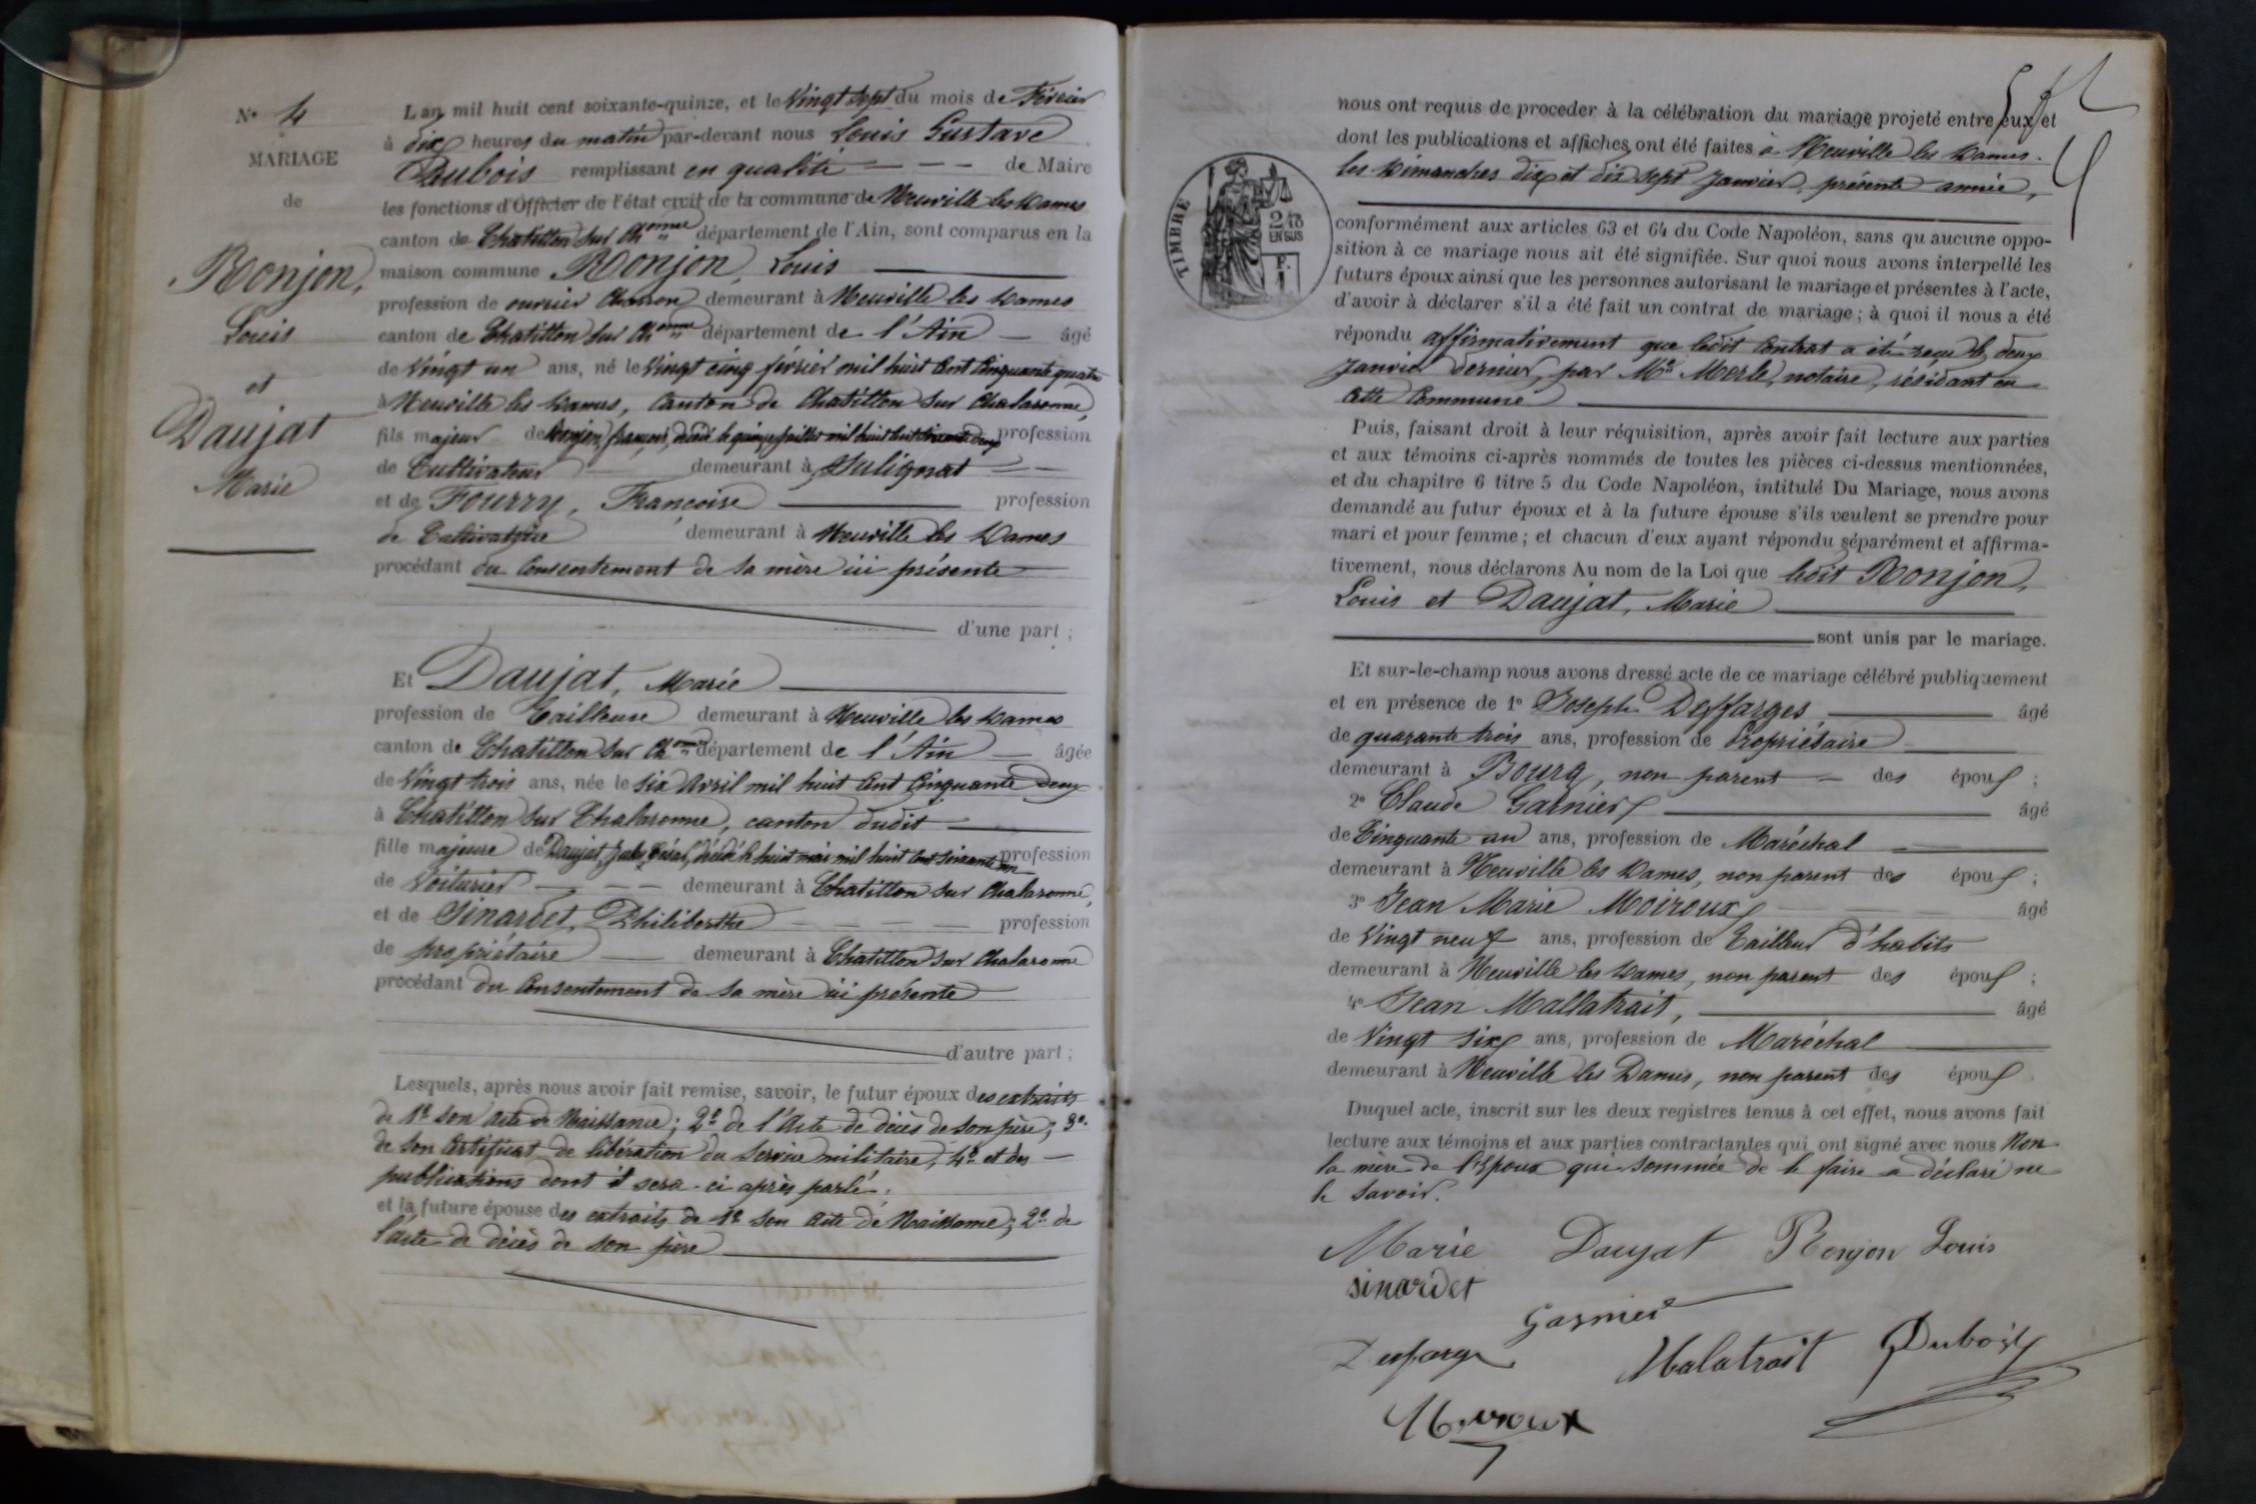 N° 4
MARIAGE
de
Ronjon,
Louis
et
Daujat
Marie
L'an mil huit cent soixante-quinze, et le Vingt sept du mois de Février
à dix heures du matin par-devant nous Louis Gustave
Dubois remplissant en qualité de Maire
les fonctions d'Officier de l'état civil de la commune de Neuville les Dames
canton de Chatillon sur Ch^onne département de l'Ain, sont comparus en la
maison commune Ronjon, Louis
profession de ouvrier Charron demeurant à Neuville les Dames
canton de Chatillon sur Ch^onne département de l'Ain âgé
de Vingt un ans, né le Vingt cinq février mil huit cent Cinquante quatre
à Neuville les Dames, Canton de Chatillon sur Chalaronne,
fils majeur de Ronjon, françois, décédé le quinze juillet mil huit cent soixante deux profession
de Cultivateur demeurant à Sulignat
et de Fourry, Françoise profession
de Cultivatrice demeurant à Neuville les Dames
procédant du Consentement de sa mère ici présente
d'une part ;
Et Daujat, Marie
profession de Tailleuse demeurant à Neuville les Dames
canton de Chatillon sur Ch^onne département de l'Ain âgée
de Vingt trois ans, née le six Avril mil huit cent Cinquante deux
à Chatillon sur Chalaronne, canton dudit
fille majeure de Daujat, décédé le huit mai mil huit cent soixante un profession
de Voiturier demeurant à Chatillon sur Chalaronne,
et de Sinardet, Philiberthe profession
de propriétaire demeurant à Chatillon sur Chalaronne
procédant du Consentement de sa mère ici présente
d'autre part ;
Lesquels, après nous avoir fait remise, savoir, le futur époux des extraits
de 1° son Acte de Naissance ; 2° de l'Acte de décès de son père ; 3°
de son Certificat de libération du Service militaire, 4° et des
publications dont il sera ci après parlé ;
et la future épouse des extraits de 1° son Acte de Naissance ; 2° de
l'acte de décès de son père
nous ont requis de proceder à la célébration du mariage projeté entre eux et
dont les publications et affiches ont été faites à Neuville les Dames
les Dimanches dix et dix sept Janvier, présente année,
TIMBRE
2/10
EN SUS
F.
1
conformément aux articles 63 et 64 du Code Napoléon, sans qu'aucune oppo-
sition à ce mariage nous ait été signifiée. Sur quoi nous avons interpellé les
futurs époux ainsi que les personnes autorisant le mariage et présentes à l'acte,
d'avoir à déclarer s'il a été fait un contrat de mariage ; à quoi il nous a été
répondu affirmativement que ledit Contrat a été reçu le deux
Janvier dernier, par M^e Merle, notaire, résidant en
cette Commune
Puis, faisant droit à leur réquisition, après avoir fait lecture aux parties
et aux témoins ci-après nommés de toutes les pièces ci-dessus mentionnées,
et du chapitre 6 titre 5 du Code Napoléon, intitulé Du Mariage, nous avons
demandé au futur époux et à la future épouse s'ils veulent se prendre pour
mari et pour femme ; et chacun d'eux ayant répondu séparément et affirma-
tivement, nous déclarons Au nom de la Loi que ledit Ronjon,
Louis et Daujat, Marie
sont unis par le mariage.
Et sur-le-champ nous avons dressé acte de ce mariage célébré publiquement
et en présence de 1° Joseph Deffarges âgé
de quarante trois ans, profession de Propriétaire
demeurant à Bourg, non parent des époux ;
2° Claude Garnier âgé
de Cinquante un ans, profession de Maréchal
demeurant à Neuville les Dames, non parent des époux ;
3° Jean Marie Moiroux âgé
de Vingt neuf ans, profession de Tailleur d'habits
demeurant à Neuville les Dames, non parent des époux ;
4° Jean Mallatrait, âgé
de Vingt six ans, profession de Maréchal
demeurant à Neuville les Dames, non parent des époux
Duquel acte, inscrit sur les deux registres tenus à cet effet, nous avons fait
lecture aux témoins et aux parties contractantes qui ont signé avec nous Non
la mère de l'Epoux qui sommée de le faire a déclaré ne
le savoir.
Marie Daujat Ronjon Louis
sinardet
Garnier
Deffarge Malatrait Dubois
Moiroux